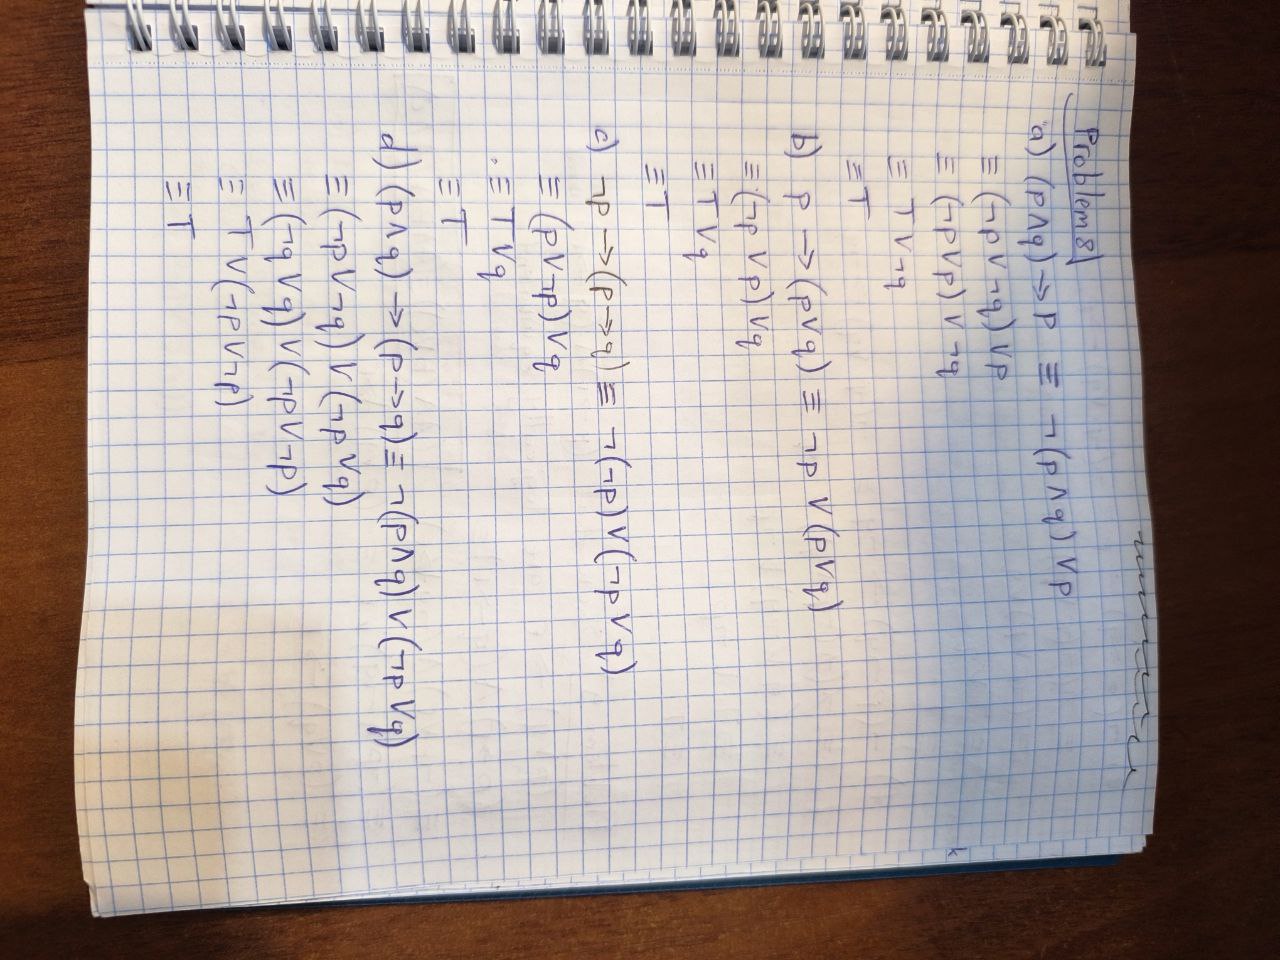 Problem 8
a) (p∧q)→p ≡ ¬(p∧q)∨p
≡ (¬p∨¬q)∨p
≡ (¬p∨p)∨¬q
≡ T∨¬q
≡ T
b) p→(p∨q) ≡ ¬p∨(p∨q)
≡ (¬p∨p)∨q
≡ T∨q
≡ T
c) ¬p→(p→q) ≡ ¬(¬p)∨(¬p∨q)
≡ (p∨¬p)∨q
≡ T∨q
≡ T
d) (p∧q)→(p→q) ≡ ¬(p∧q)∨(¬p∨q)
≡ (¬p∨¬q)∨(¬p∨q)
≡ (¬q∨q)∨(¬p∨¬p)
≡ T∨(¬p∨¬p)
≡ T